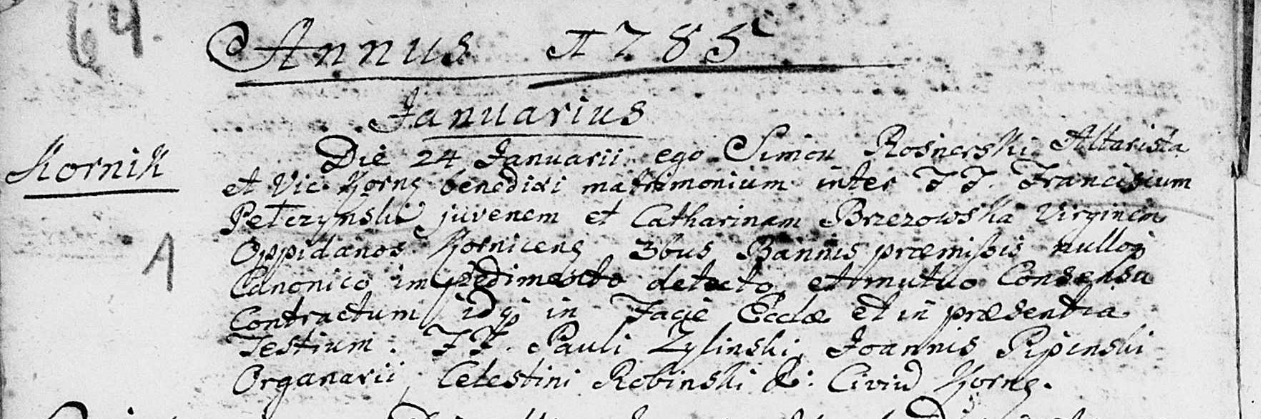 64.
Annus 1785
Januarius
Kornik
Die 24 Januarii ego Simon Rosnerski Altarista
et Vic: Korng benedixi matrimonium inter FF. Franciscum
Petczyński juvenem et Catharinam Brzezowska Virginem
1
Oppidanos Korniceng 3bus Bannis præmissis nulloq
Canonico impedimento detecto et mutuo Consensu
Contractum idq in Facie Eccłæ et in præsentia
Testium: FF. Pauli Zylinski, Joannis Pipinski
Organarii, Celestini Robinski &: Civiu Korng.